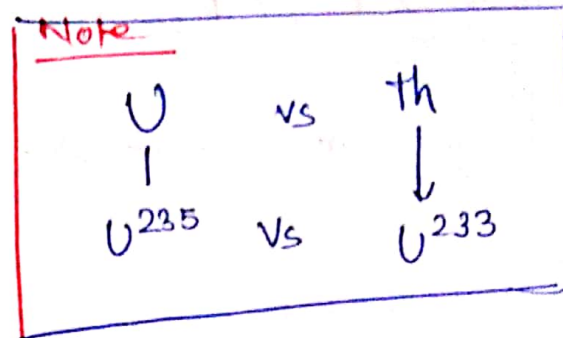 Note
U vs Th
U²³⁵ Vs U²³³